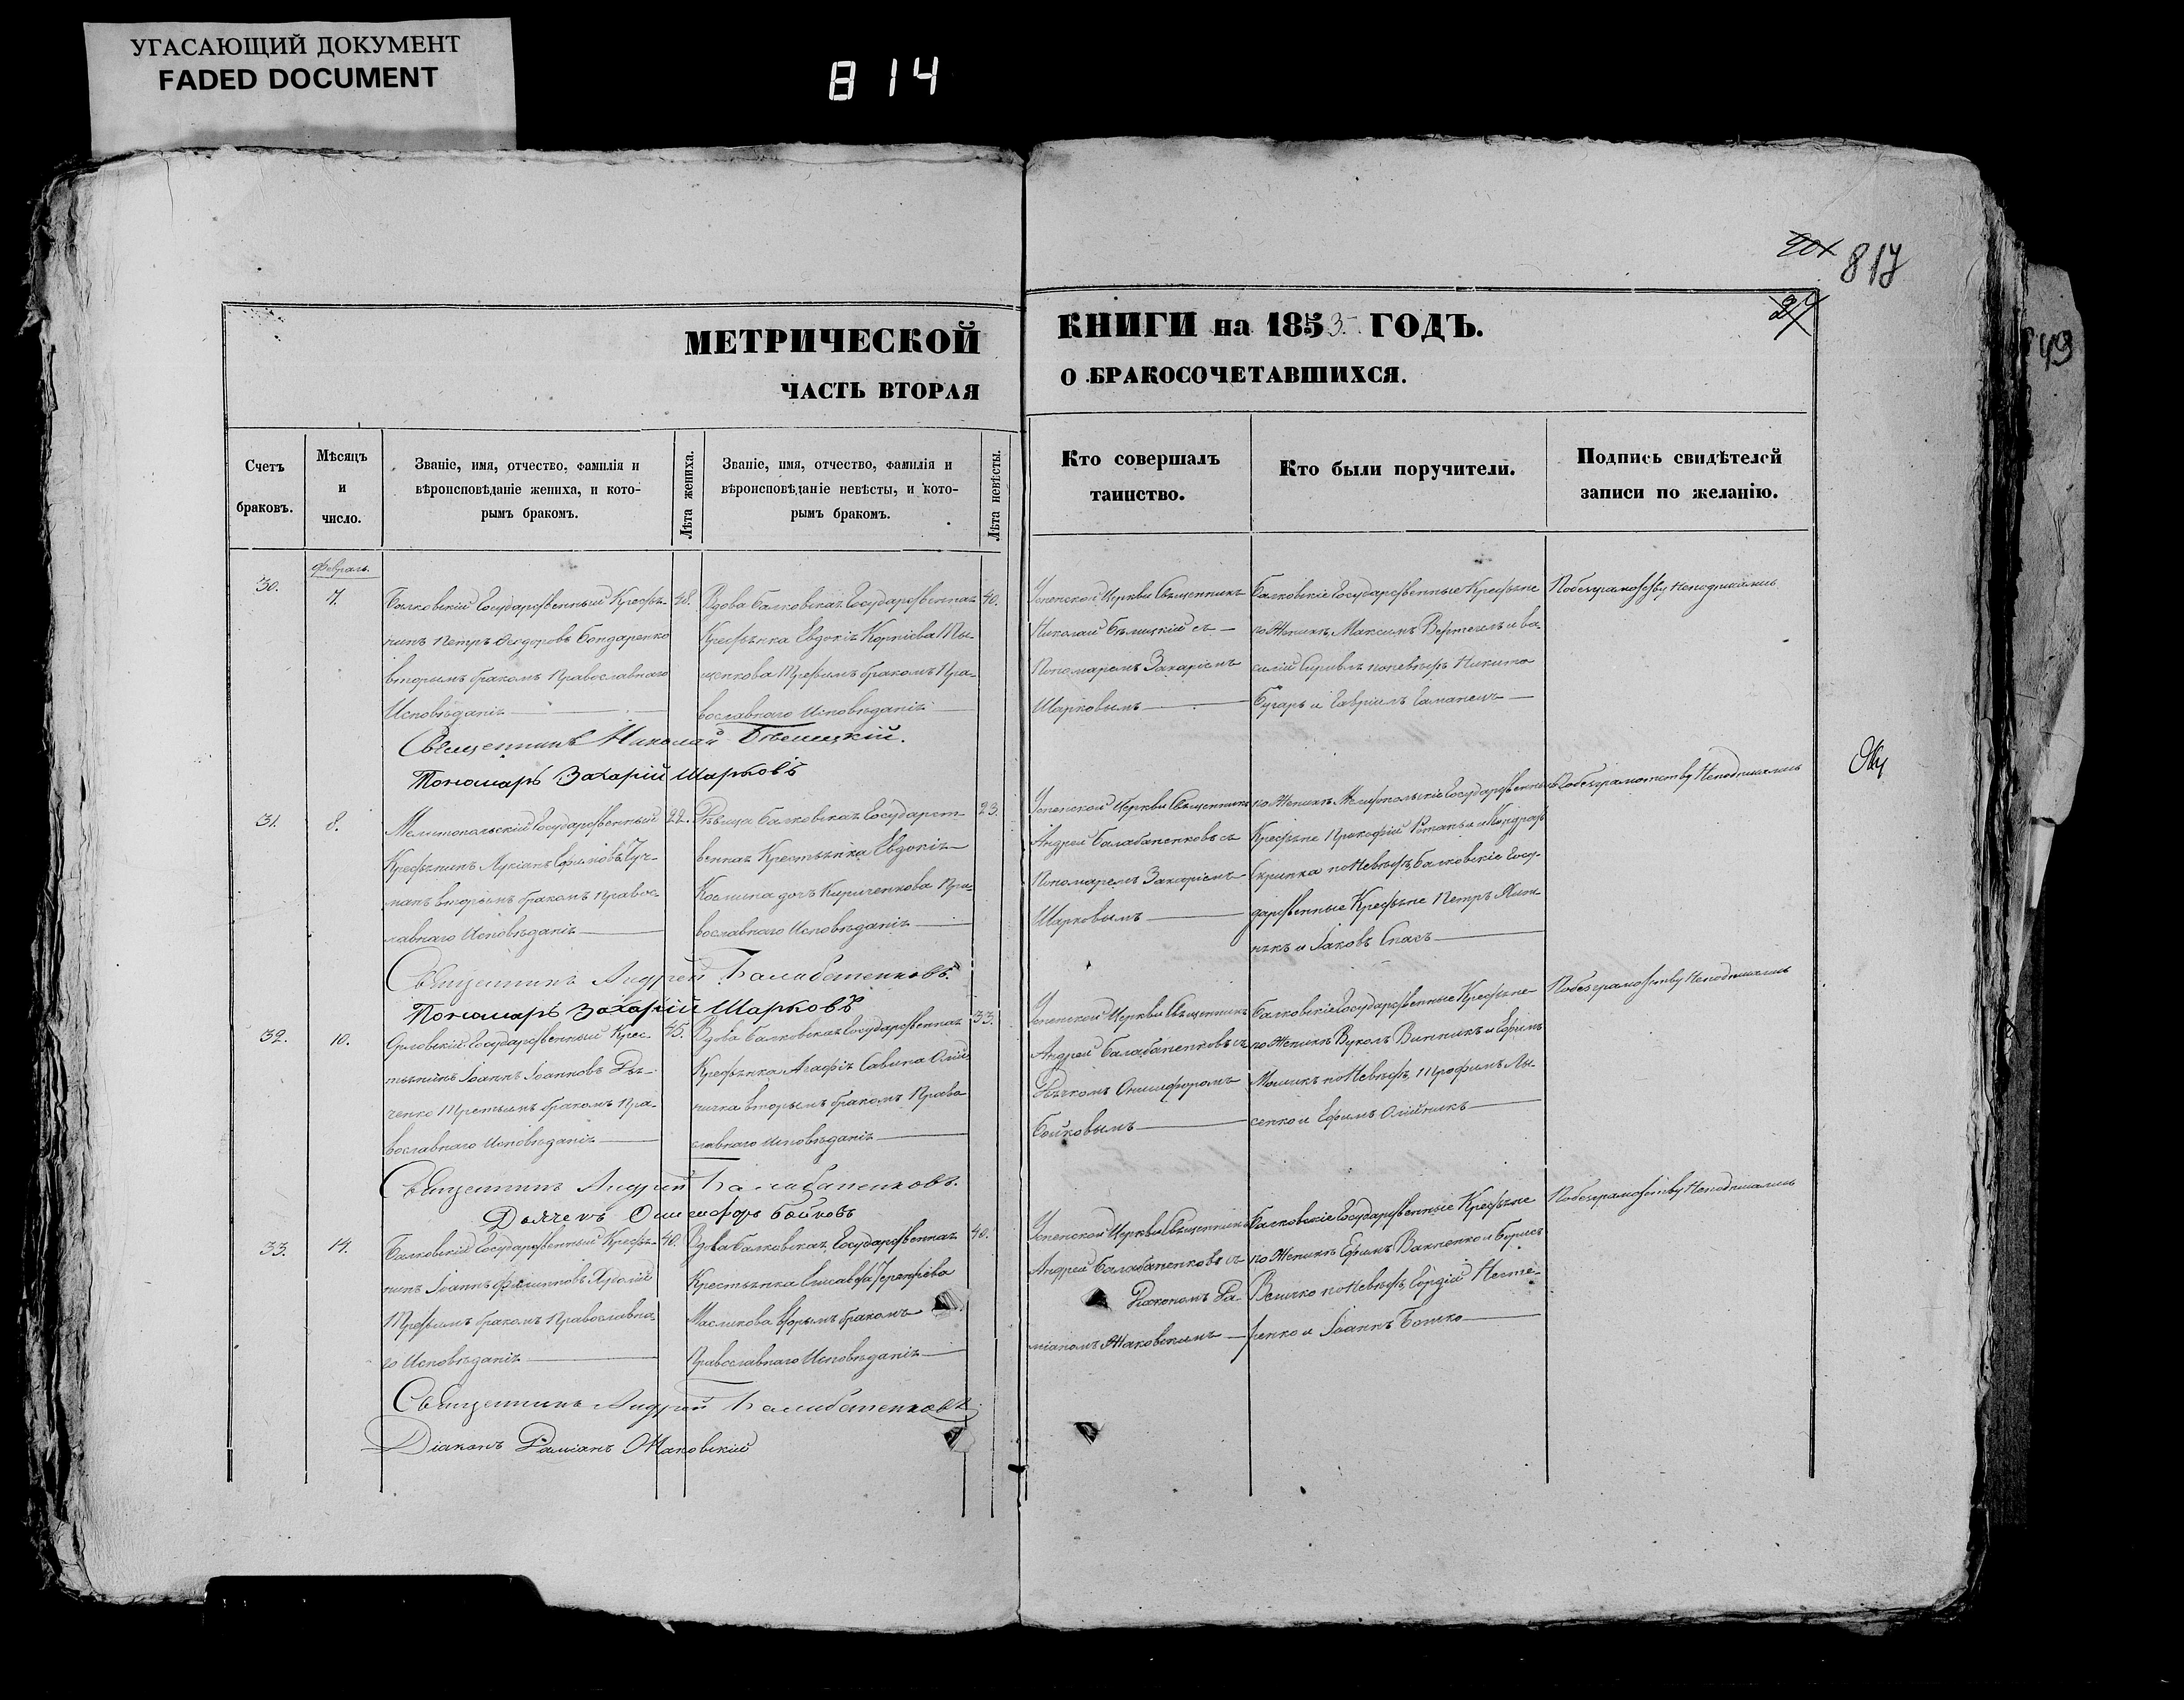 УГАСАЮЩИЙ ДОКУМЕНТ
FADED DOCUMENT
814
817
МЕТРИЧЕСКОЙ
ЧАСТЬ ВТОРАЯ
КНИГИ на 1853 ГОДЪ.
О БРАКОСОЧЕТАВШИХСЯ.
Счетъ
браковъ.
Мѣсяцъ
и
число.
Званіе, имя, отчество, фамилія и
вѣроисповѣданіе жениха, и кото-
рымъ бракомъ.
Лѣта жениха.
Званіе, имя, отчество, фамилія и
вѣроисповѣданіе невѣсты, и кото-
рымъ бракомъ.
Лѣта невѣсты.
Кто совершалъ
таинство.
Кто были поручители.
Подпись свидѣтелей
записи по желанію.
Февраль.
30.
7.
Балковскій Государственный Кресть-
нинъ Петръ Ѳеодоровъ Бондаренко
вторымъ бракомъ Православнаго
Исповѣданія
48.
Вдова Балковская Государственная
Крестьянка Евдокія Корніева
Третьимъ бракомъ Пра-
вославнаго Исповѣданія
40.
Успенской Церкви Священникъ
Николай Бѣлицкій съ
Пономаремъ Захаріемъ
Шарковымъ
Балковскіе Государственные Крестьяне
по Женихѣ Максимъ Вертегелъ и Ва-
силій по невѣстѣ Никита
Бугаръ и Гавріилъ
По безграмотству Неподписались
Священникъ Николай Бѣлицкій.
Пономарь Захарій Шарковъ
31.
8.
Мелитопольскій Государственный
Крестьянинъ Лукіанъ Ефимовъ Гуч-
манъ вторымъ бракомъ Правос-
лавнаго Исповѣданія
22.
Дѣвица Балковская Государст-
венная Крестьянка Евдокія
Космина дочь Кириченкова Пра-
вославнаго Исповѣданія
23.
Успенской Церкви Священникъ
Андрей Балабаненковъ съ
Пономаремъ Захаріемъ
Шарковымъ
по Женихѣ Мелитопольскіе Государственные
Крестьяне Прокофій и Кондратъ
Скрипка по Невѣстѣ Балковскіе Госу-
дарственные Крестьяне Петръ
и Іаковъ Спасъ
По безграмотству Неподписались
Священникъ Андрей Балабаненковъ.
Пономарь Захарій Шарковъ
32.
10.
Орловскій Государственный Крес-
тьянинъ Іоаннъ Іоанновъ
Третьимъ бракомъ Пра-
вославнаго Исповѣданія
45.
Вдова Балковская Государственная
Крестьянка Агафія Савина Олій-
ничка вторымъ бракомъ Право-
славнаго Исповѣданія
33.
Успенской Церкви Священникъ
Андрей Балабаненковъ съ
Дьячкомъ Онисифоромъ
Бойковымъ
Балковскіе Государственные Крестьяне
по Женихѣ Вуколъ Винникъ и Ефимъ
по Невѣстѣ Трофимъ Лы-
сенко и Ефимъ Олійникъ
По безграмотству Неподписались
Священникъ Андрей Балабаненковъ.
Дьячекъ Онисифоръ Бойковъ
33.
14.
Балковскій Государственный Кресть-
нинъ Іоаннъ Филипповъ
Третьимъ бракомъ Православна-
го Исповѣданія
40.
Вдова Балковская Государственная
Крестьянка Елисавета Терентіева
Масликова вторымъ бракомъ
Православнаго Исповѣданія
40.
Успенской Церкви Священникъ
Андрей Балабаненковъ съ
Діакономъ Да-
міаномъ Жаковскимъ
Балковскіе Государственные Крестьяне
по Женихѣ Ефимъ Вакпенко и Борисъ
Величко по Невѣстѣ Сергій Несте-
ренко и Іоаннъ Бошко
По безграмотству Неподписались
Священникъ Андрей Балабаненковъ.
Діаконъ Даміанъ Жаковскій